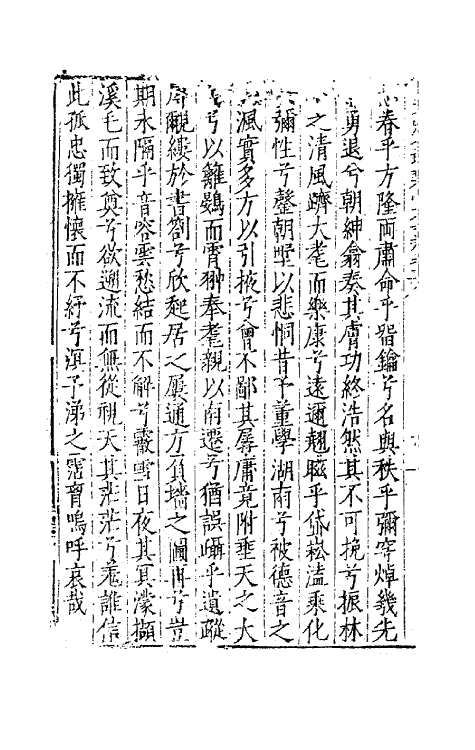 春乎方隆两肅命乎留鑰兮名與秩乎彌穹焯幾先
勇退兮朝紳翕奏其膚功終浩然其不可挽兮振林
之清風躋大耄而樂康兮遠邇翹瞻乎岱崧溘乘化
彌性兮罄朝野以悲恫昔予董學湖南兮被德音之
渢實多方以引掖兮曾不鄙其孱庸竟附垂天之大
兮以雛鷃而霄翀奉耄親以南還兮猶誤囁乎遺蹤
覼縷於書劄兮欣起居之屢通方負墻之圖再兮豈
期永隔乎音容雲愁結而不解兮霰雪日夜其冥濛擷
溪毛而致奠兮欲遡流而無從視天其茫茫兮羗誰信
此孤忠獨擁懷而不紓兮溟予涕之霑胷嗚呼哀哉